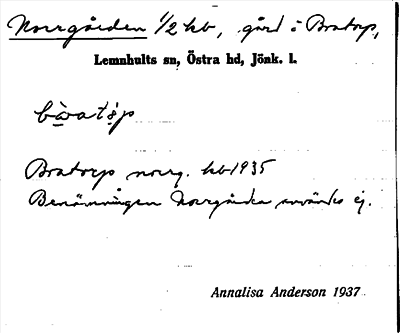 Norrgården 1/2 kb, gård i Bratorp,
Lemnhults sn, Östra hd, Jönk. l.
bàratṣp
Bratorp norrg. kb 1935
Benämningen Norrgården användes ej.
Annalisa Anderson 1937